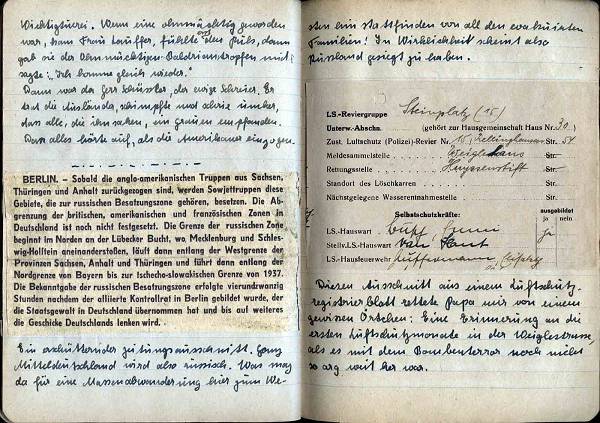 Wichtigtuerei. Wenn eine ohnmächtig geworden
war, kam Frau Lauffer, fühlte den Puls, dann
gab sie der Ohnmächtigen Baldriantropfen und
sagte: „Ich komme gleich wieder."
Dann war da Herr Schüssler, der ewige Schreier. Er
trat die Ausländer, schimpfte und schrie umher,
daß alle, die ihn sahen, ein Grauen empfanden.
Das alles hörte auf, als die Amerikaner einzogen.
BERLIN. – Sobald die anglo-amerikanischen Truppen aus Sachsen,
Thüringen und Anhalt zurückgezogen sind, werden Sowjettruppen diese
Gebiete, die zur russischen Besatzungszone gehören, besetzen. Die Ab-
grenzung der britischen, amerikanischen und französischen Zonen in
Deutschland ist noch nicht festgesetzt. Die Grenze der russischen Zone
beginnt im Norden an der Lübecker Bucht, wo Mecklenburg und Schles-
wig-Holstein aneinanderstoßen, läuft dann entlang der Westgrenze der
Provinzen Sachsen, Anhalt und Thüringen und führt dann entlang der
Nordgrenze von Bayern bis zur tschecho-slowakischen Grenze von 1937.
Die Bekanntgabe der russischen Besatzungszone erfolgte vierundzwanzig
Stunden nachdem der alliierte Kontrollrat in Berlin gebildet wurde, der
die Staatsgewalt in Deutschland übernommen hat und bis auf weiteres
die Geschicke Deutschlands lenken wird.
Ein erschütternder Zeitungsausschnitt. Ganz
Mitteldeutschland wird also russisch. Was mag
da für eine Massenabwanderung hier zum We-
sten hin stattfinden von all den evakuierten
Familien! In Wirklichkeit scheint also
Russland gesiegt zu haben.
LS.-Reviergruppe Steinplatz (15)
Unterw.-Abschn. (gehört zur Hausgemeinschaft Haus Nr. 30)
Zust. Luftschutz (Polizei)-Revier Nr. 15, Str. 54
Meldesammelstelle Weiglehaus Str.
Rettungsstelle Huyssenstift Str.
Standort des Löschkarren Str.
Nächstgelegene Wasserentnahmestelle Str.
Selbstschutzkräfte: ausgebildet
ja nein
LS.-Hauswart ja
Stellv. LS.-Hauswart
LS.-Hausfeuerwehr
Diesen Ausschnitt aus einem Luftschutz-
registrierblatt rettete Papa mir von einem
gewissen Örtchen: Eine Erinnerung an die
ersten Luftschutzmonate in der Weiglestrasse,
als es mit dem Bombenterror noch nicht
so arg weit her war.